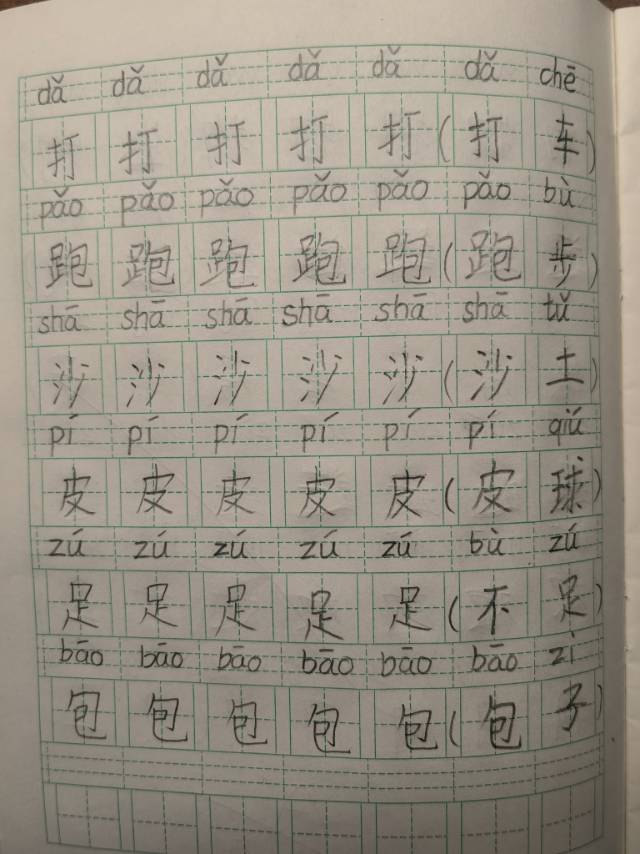 dǎ dǎ dǎ dǎ dǎ dǎ chē
打 打 打 打 打 (打 车)
pǎo pǎo pǎo pǎo pǎo pǎo bù
跑 跑 跑 跑 跑 (跑 步)
shā shā shā shā shā shā tǔ
沙 沙 沙 沙 沙 (沙 土)
pí pí pí pí pí pí qiú
皮 皮 皮 皮 皮 (皮 球)
zú zú zú zú zú bù zú
足 足 足 足 足 (不 足)
bāo bāo bāo bāo bāo bāo zi
包 包 包 包 包 (包 子)